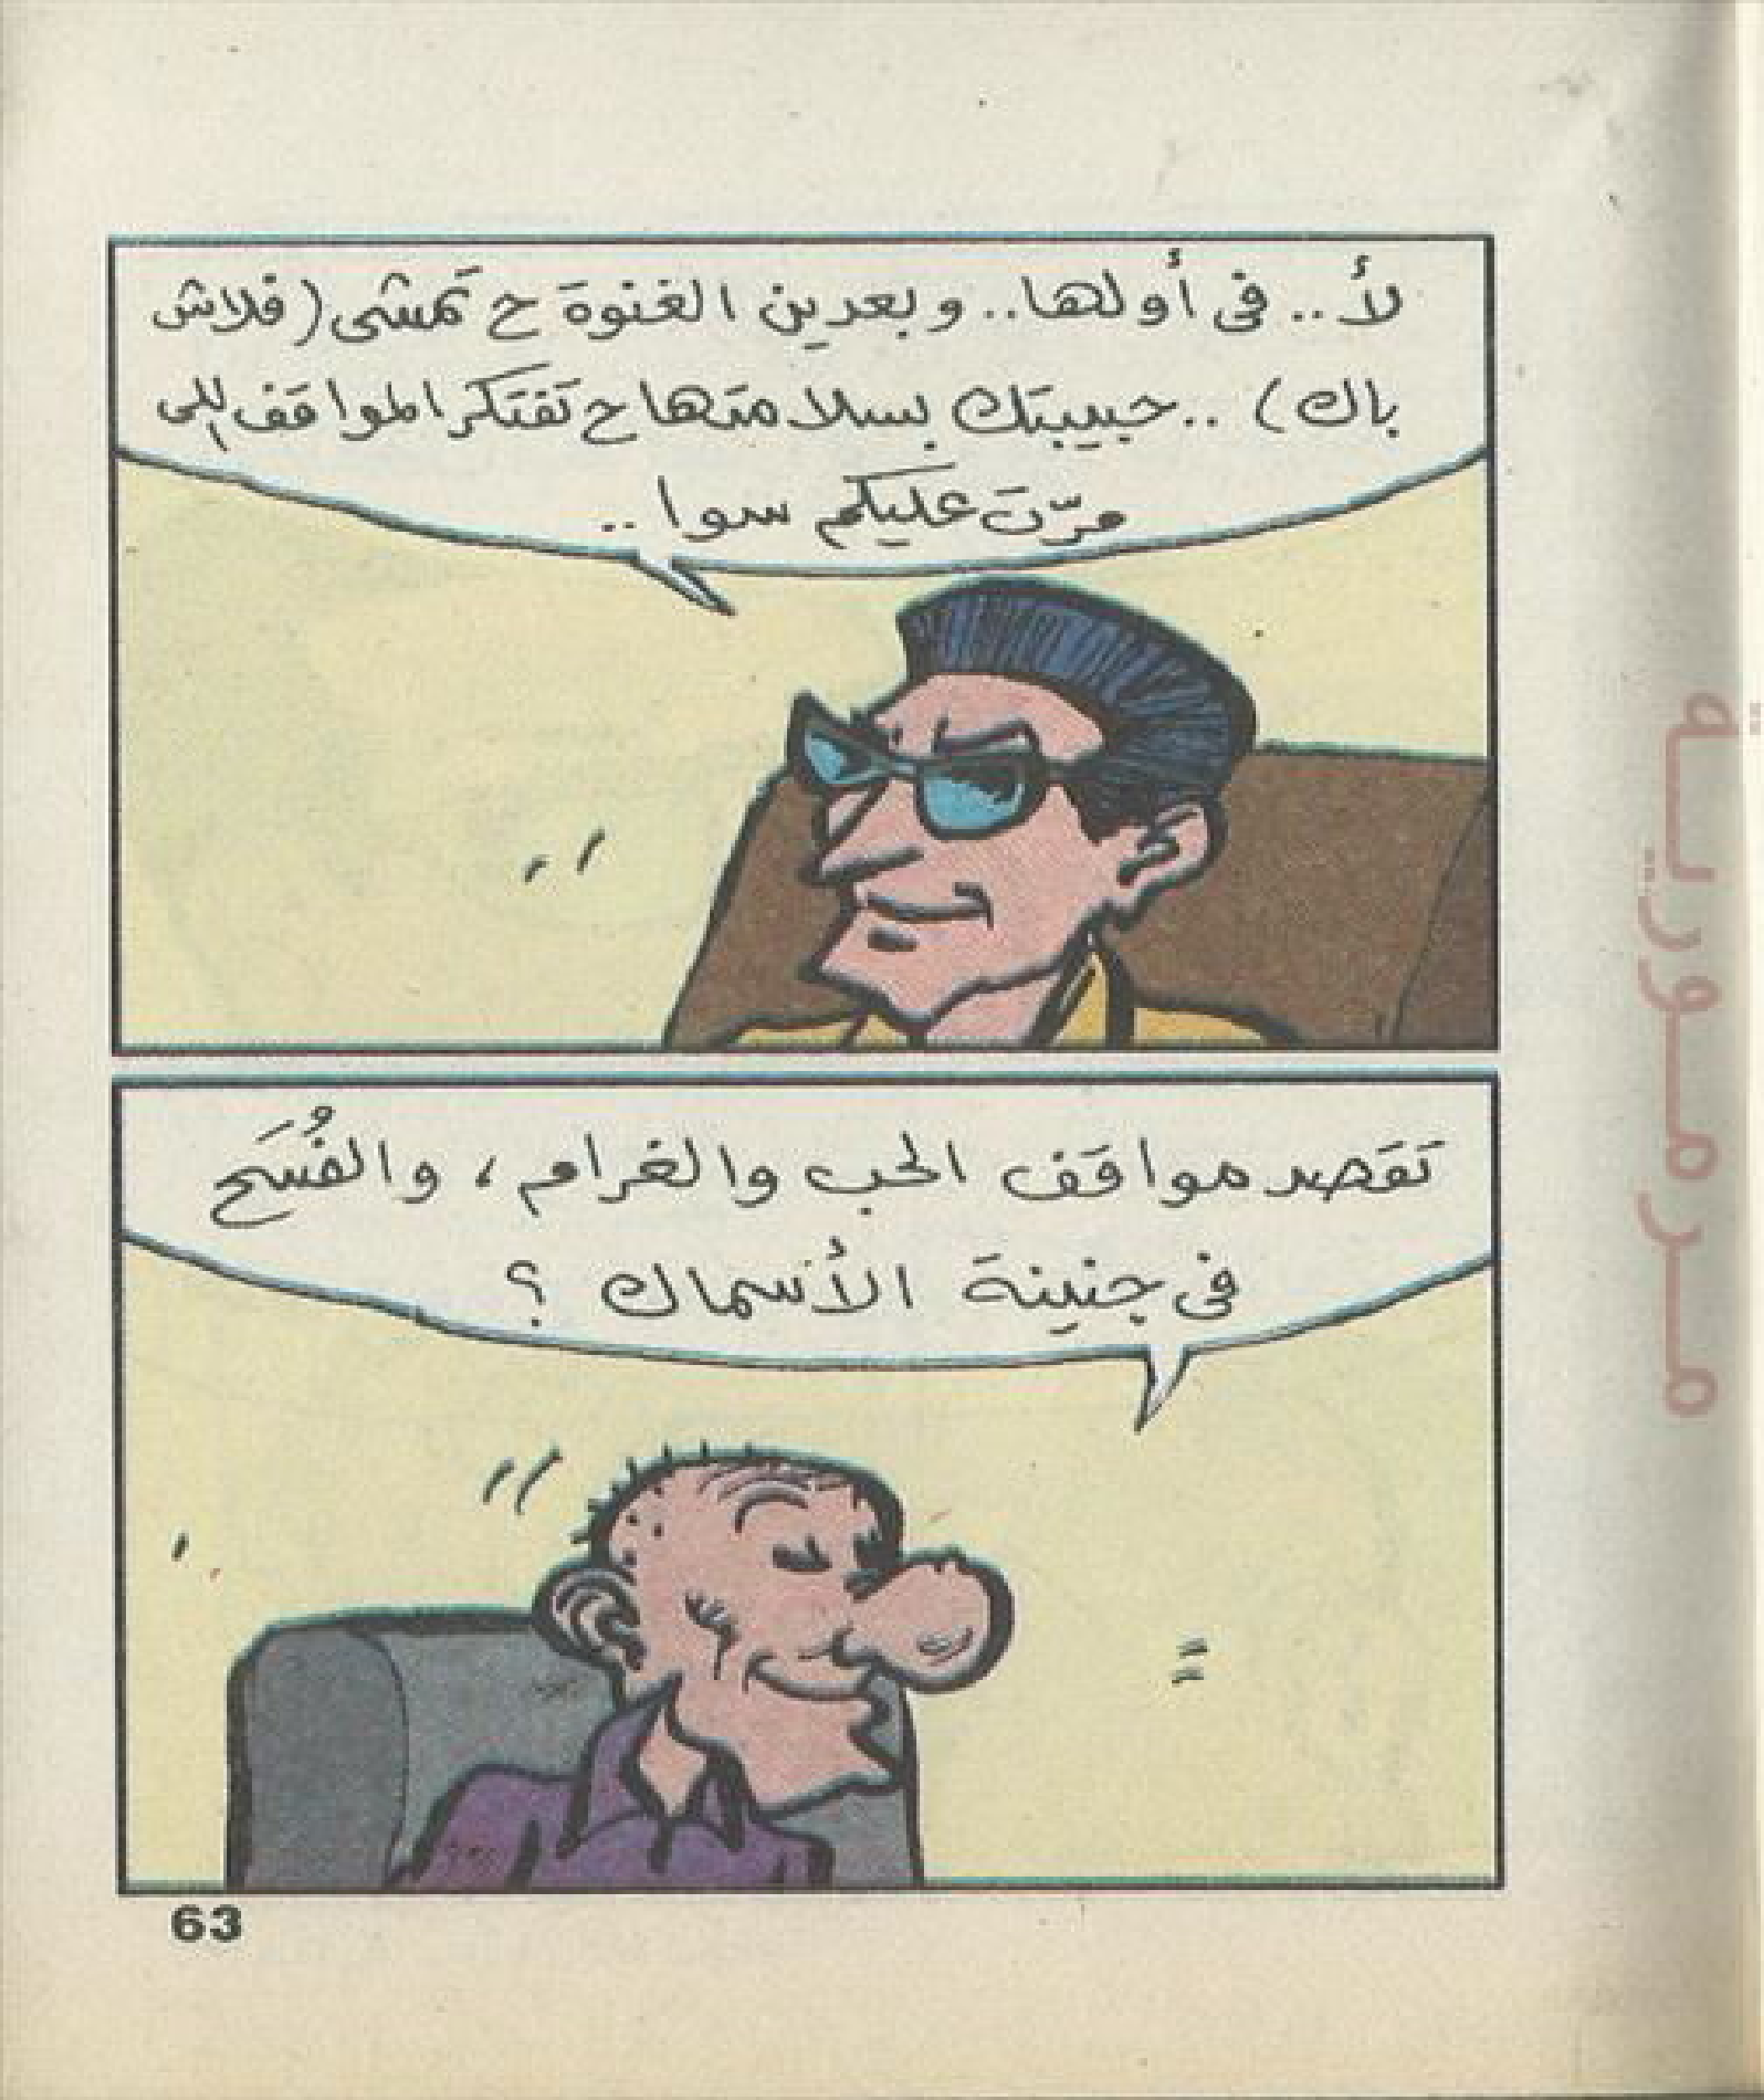 لأ .. فى أولها .. وبعدين الغنوة ح تمشى (فلاش
باك) .. حبيبتك بسلامتها ح تفتكر المواقف اللى
مرّت عليكم سوا ..
تقصد مواقف الحب والغرام ، والفُسَح
فى جنينة الأسماك ؟
63
مرمورية